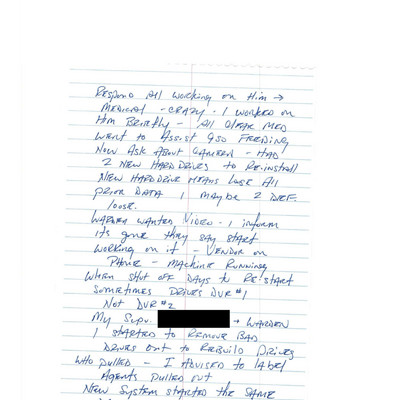 Respond All working on Him →
Medical - crazy. I worked on
Him Briefly - All Clear Med
Went to Assist 950 Feeding
Now Ask About Camera - Had
2 New Hard Drives to Re-install
New Hard Drive Means Lose All
Prior Data 1 maybe 2 Drives
lose.
Warden Wanted Video - I inform
its gone they say start
working on it - Vendor on
Phone - Machine Running
When shut off Days to Re-start
Sometimes Drives DVR #1
Not DVR #2
My Supv. → Warden
I started to Remove Bad
Drives out to Rebuild Drives
Who pulled - I advised to label
Agents pulled out
New System started the same